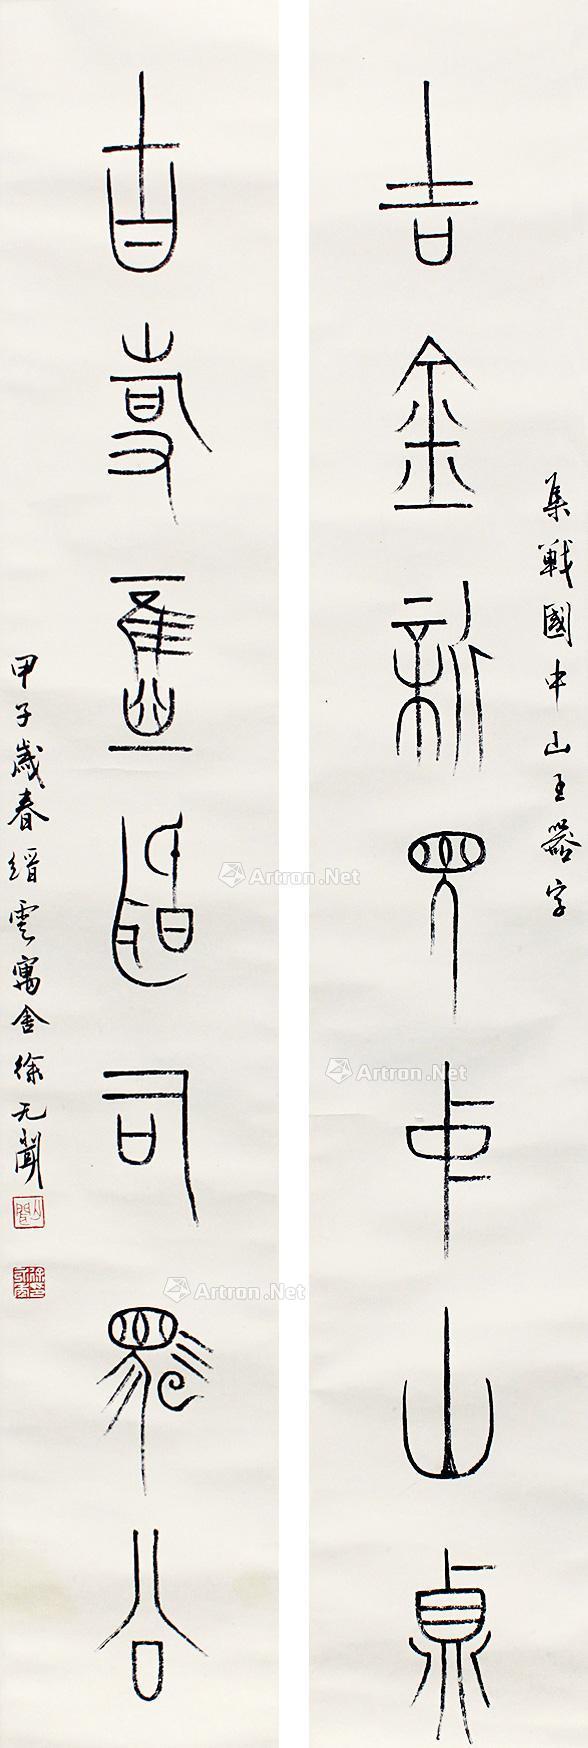 吉金新見中山鼎
集戰國中山王器字
古事舊聞司馬公
甲子歲春縉雲寓舍徐无聞
Artron.Net
Artron.Net
Artron.Net